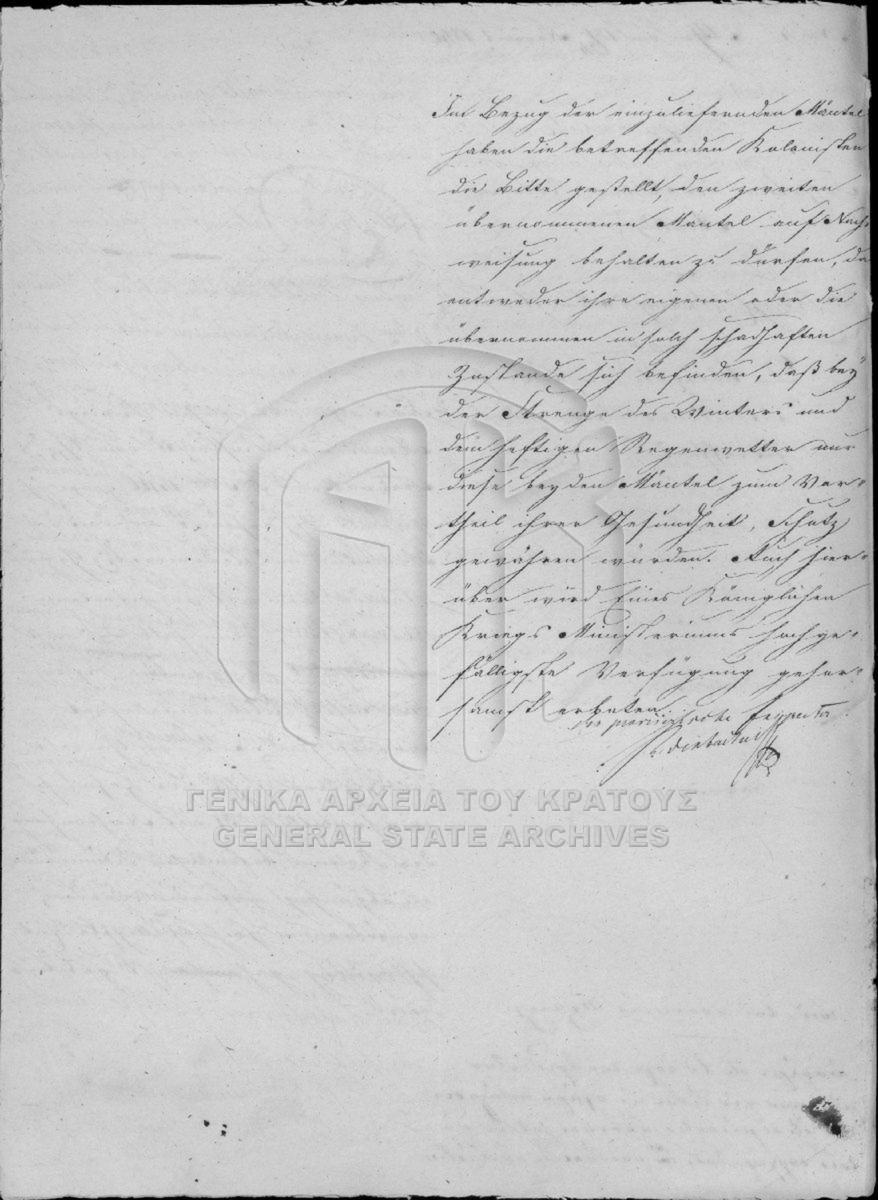 Im Bezug der einzuliefernden Mäntel
haben die betreffenden Kolonisten
die Bitte gestellt, den zweiten
übernommenen Mantel auf Nach-
weisung behalten zu dürfen, da
entweder ihre eigenen oder die
übernommen in solch schadhaften
Zustande sich befinden, daß bey
der Strenge des Winters und
dem heftigen Regenwetter nur
diese beyden Mäntel zum Vor-
theil ihrer Gesundheit, Schutz
gewähren würden. Auch hier-
über wird Eines Königlichen
Kriegs Ministeriums hochge-
fälligste Verfügung gehor-
samst erbeten
ΓΕΝΙΚΑ ΑΡΧΕΙΑ ΤΟΥ ΚΡΑΤΟΥΣ
GENERAL STATE ARCHIVES